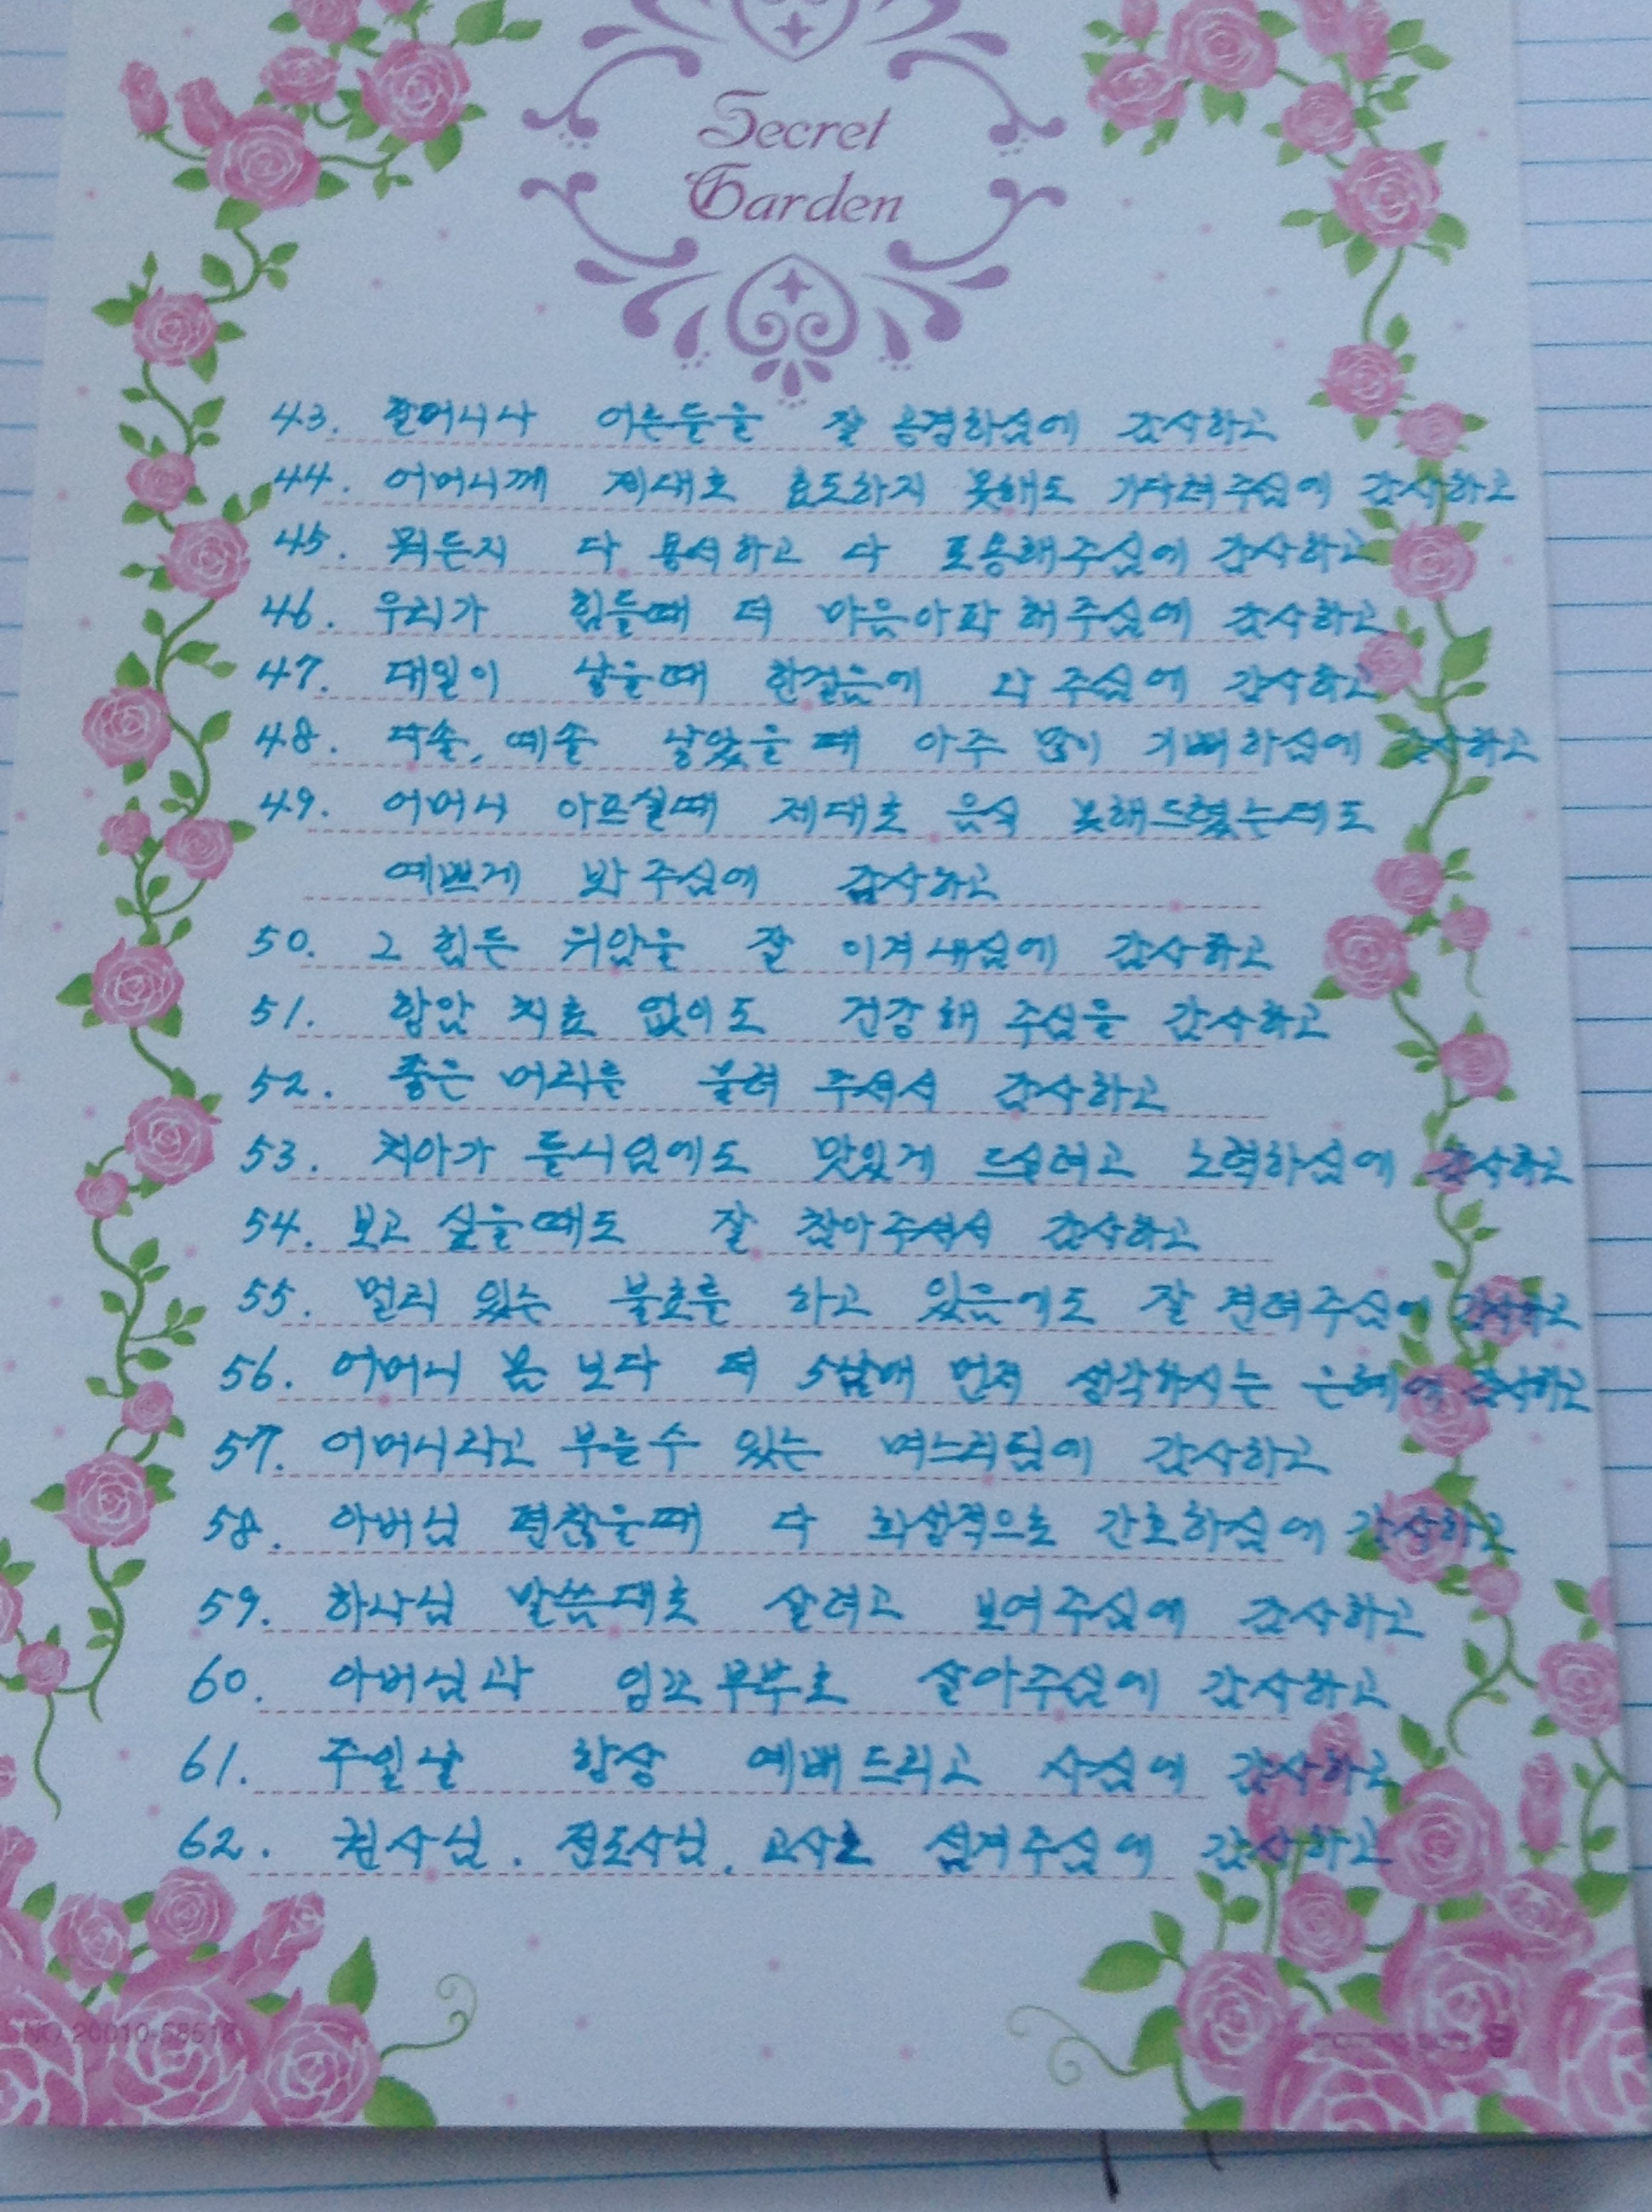 Secret
Garden
43. 할머니나 어른들을 잘 공경하심에 감사하고
44. 어머니께 제대로 효도하지 못해도 기다려주심에 감사하고
45. 뭐든지 다 용서하고 다 포용해주심에 감사하고
46. 우리가 힘들때 더 마음아파 해주심에 감사하고
47. 대일이 낳을때 한걸음에 와 주심에 감사하고
48. 다솔, 예솔 낳았을때 아주 많이 기뻐하심에 감사하고
49. 어머니 아프실때 제대로 음식 못해드렸는데도
예쁘게 봐 주심에 감사하고
50. 그 힘든 위암을 잘 이겨내심에 감사하고
51. 항암 치료 없이도 건강해 주심을 감사하고
52. 좋은 머리를 물려 주셔서 감사하고
53. 치아가 틀니임에도 맛있게 드실려고 노력하심에 감사하고
54. 보고 싶을때도 잘 참아주셔서 감사하고
55. 멀리 있는 불효를 하고 있음에도 잘 견뎌주심에 감사하고
56. 어머니 몸 보다 더 5남매 먼저 생각하시는 은혜에 감사하고
57. 어머니라고 부를수 있는 며느리됨에 감사하고
58. 아버님 편찮을때 다 희생적으로 간호하심에 감사하고
59. 하나님 말씀대로 살려고 보여주심에 감사하고
60. 아버님과 잉꼬부부로 살아주심에 감사하고
61. 주일날 항상 예배드리고 사심에 감사하고
62. 권사님. 전도사님. 교사로 섬겨주심에 감사하고